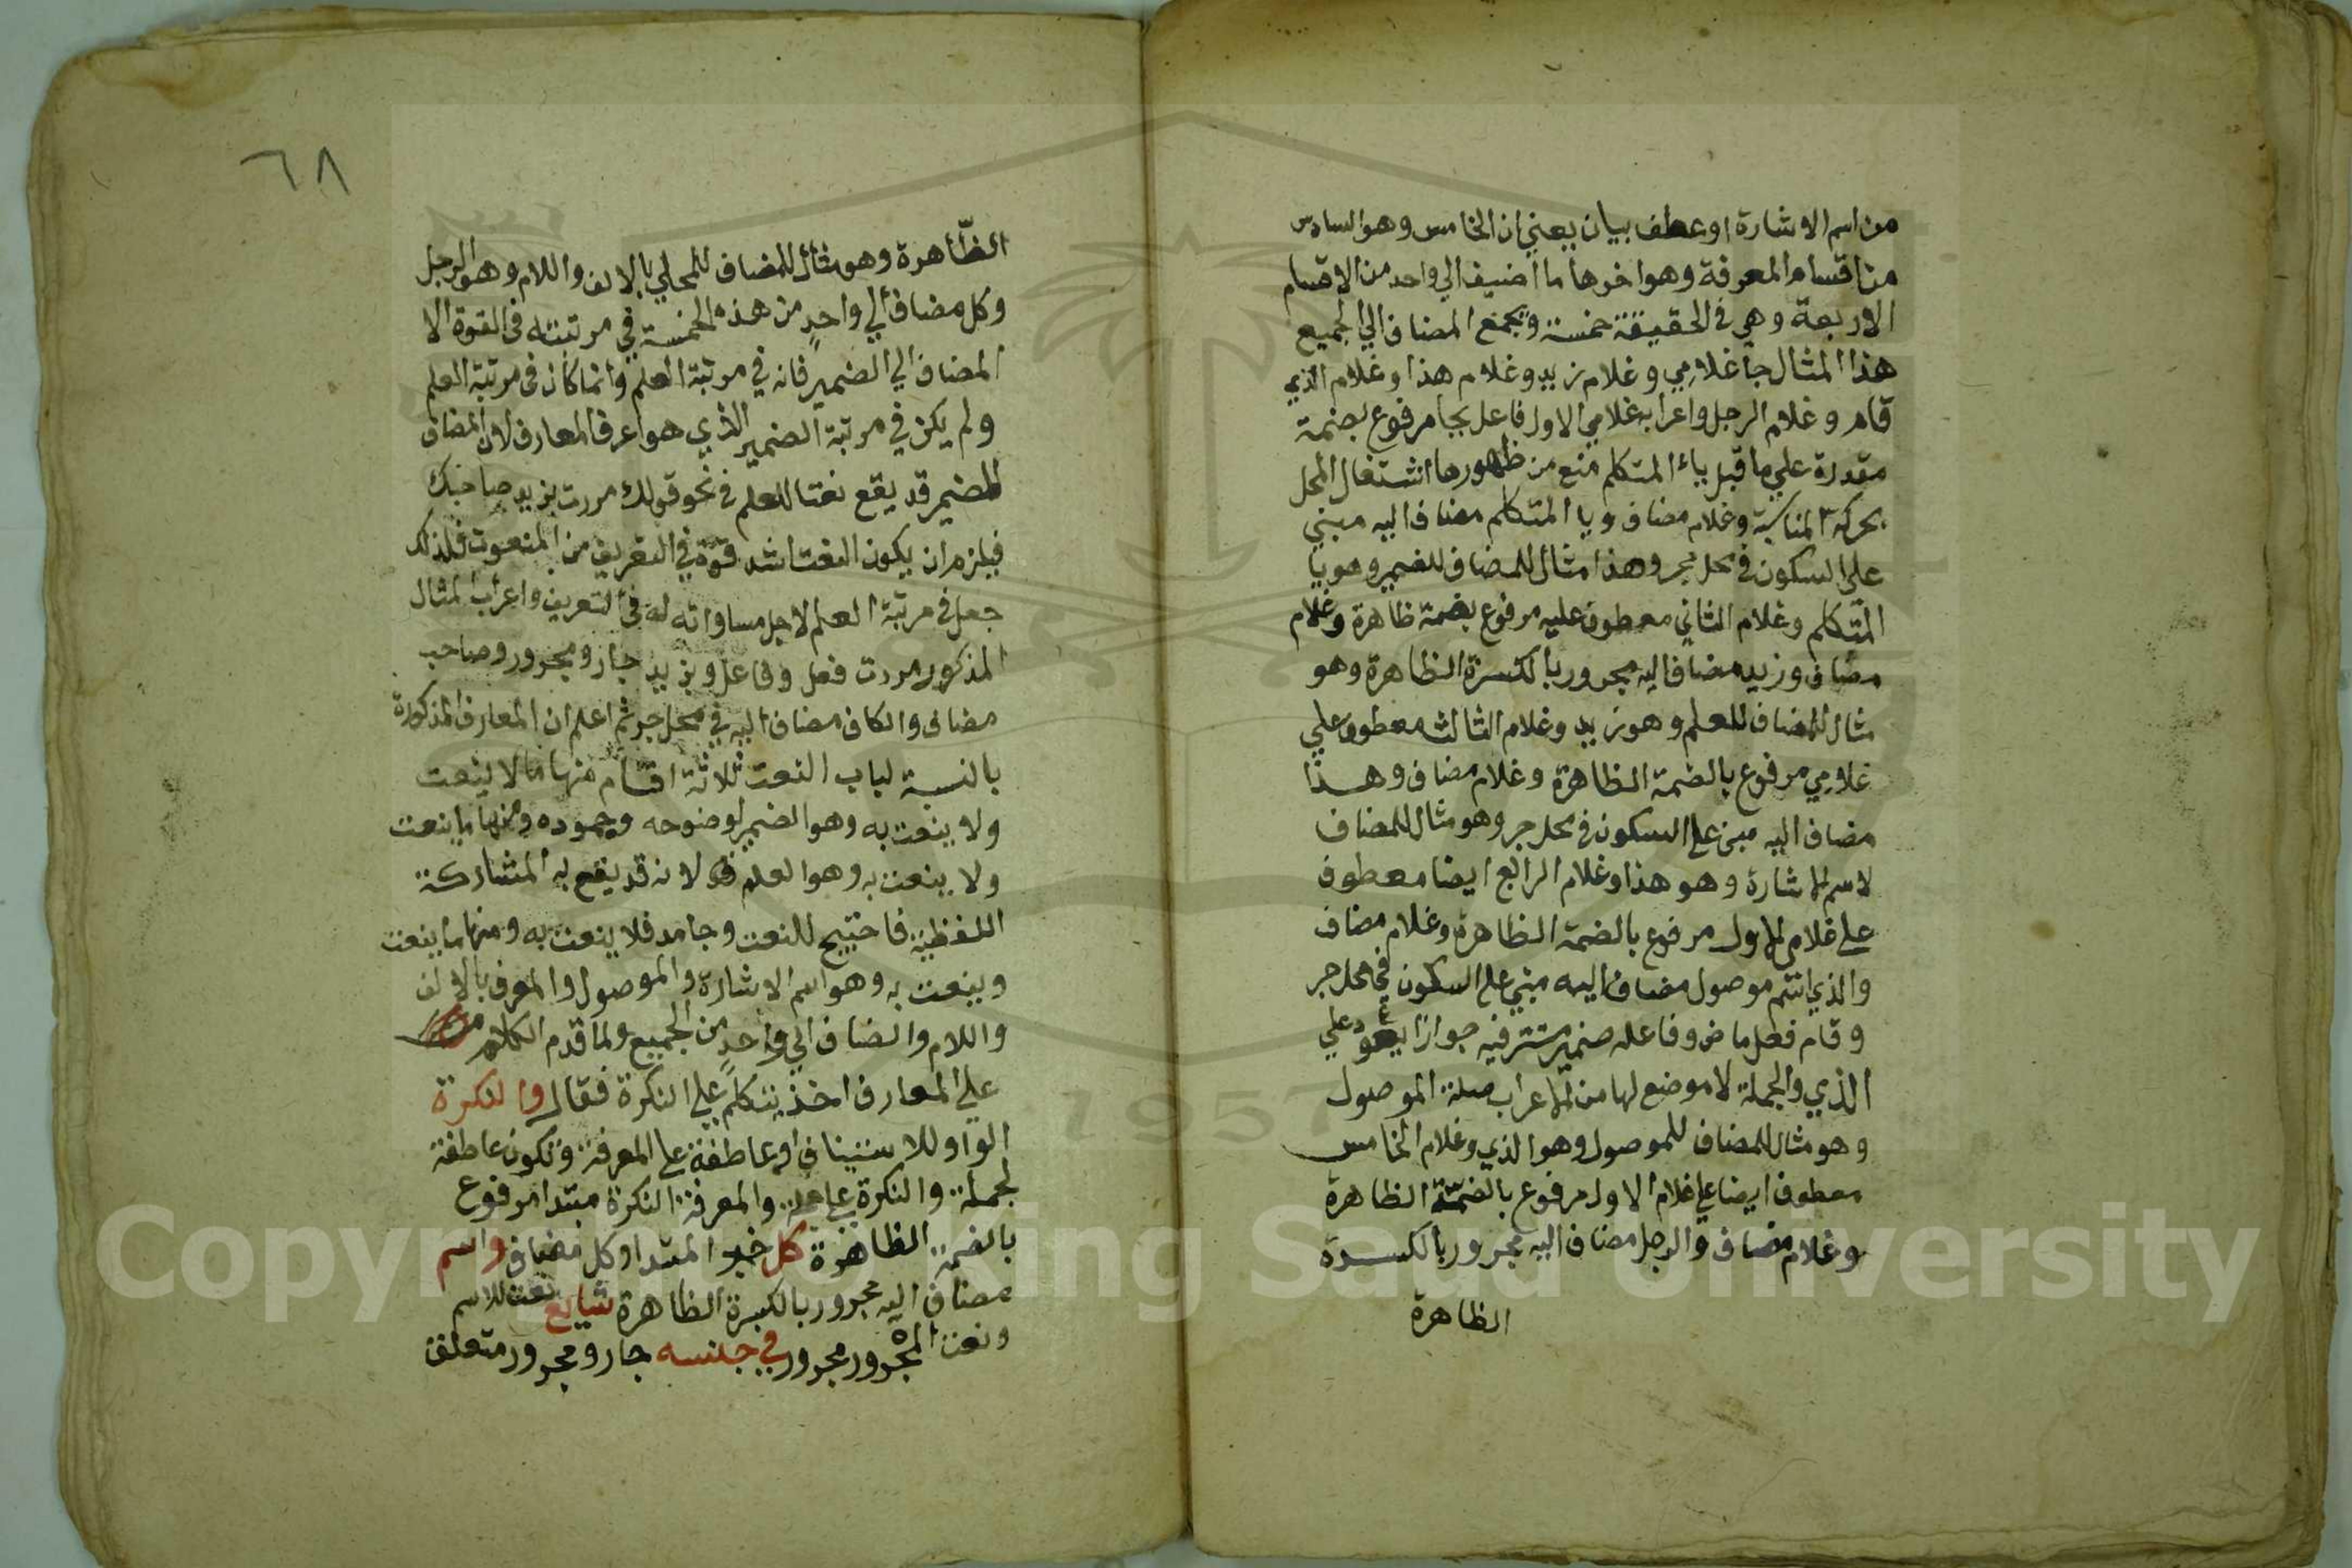 من اسم الاشارة او عطف بيان يعني ان الخامس وهو السادس
من اقسام المعرفة وهو اخرها ما اضيف الي واحد من الاقسام
الاربعة وهي في الحقيقة خمسة ويجمع المضاف الي الجميع
هذا المثال جا غلامي وغلام زيد وغلام هذا وغلام الذي
قام وغلام الرجل واعرابه غلامي الاول فاعل بجا مرفوع بضمة
مقدرة علي ما قبل ياء المتكلم منع من ظهورها اشتغال المحل
بحركة المناسبة وغلام مضاف ويا المتكلم مضاف اليه مبني
علي السكون في محل جر وهذا مثال للمضاف للضمير وهو يا
المتكلم وغلام الثاني معطوف عليه مرفوع بضمة ظاهرة وغلام
مضاف وزيد مضاف اليه مجرور بالكسرة الظاهرة وهو
مثال للمضاف للعلم وهو زيد وغلام الثالث معطوف علي
غلامي مرفوع بالضمة الظاهرة وغلام مضاف وهذا
مضاف اليه مبني علي السكون في محل جر وهو مثال للمضاف
لاسم الاشارة وهو هذا وغلام الرابع ايضا معطوف
علي غلامي الاول مرفوع بالضمة الظاهرة وغلام مضاف
والذي اسم موصول مضاف اليه مبني علي السكون في محل جر
وقام فعل ماض وفاعله ضمير مستتر فيه جوازا يعود علي
الذي والجملة لا موضع لها من الاعراب صلة الموصول
وهو مثال للمضاف للموصول وهو الذي وغلام الخامس
معطوف ايضا علي غلام الاول مرفوع بالضمة الظاهرة
وغلام مضاف والرجل مضاف اليه مجرور بالكسرة
الظاهرة
٦٨
الظاهرة وهو مثال للمضاف للمحلي بالالف واللام وهو الرجل
وكل مضاف الي واحد من هذه الخمسة في مرتبته في القوة الا
المضاف الي الضمير فانه في مرتبة العلم وانما كان في مرتبة العلم
ولم يكن في مرتبة الضمير الذي هو اعرف المعارف لان المضاف
للضمير قد يقع نعتا للعلم في نحو قولك مررت بزيد صاحبك
فيلزم ان يكون النعت اشد قوة في التعريف من المنعوت فلذلك
جعل في مرتبة العلم لاجل مساواته له في التعريف واعراب المثال
المذكور مررت فعل وفاعل وبزيد جار ومجرور وصاحب
مضاف والكاف مضاف اليه في محل جر ثم اعلم ان المعارف المذكورة
بالنسبة لباب النعت ثلاثة اقسام منها ما لا ينعت
ولا ينعت به وهو الضمير لوضوحه وجموده ومنها ما ينعت
ولا ينعت به وهو العلم لانه قد يقع به المشاركة
اللفظية فاحتيج للنعت وجامد فلا ينعت به ومنها ما ينعت
وينعت به وهو اسم الاشارة والموصول والمعرف بالالف
واللام والمضاف الي واحد من الجميع ولما قدم الكلام
علي المعارف اخذ يتكلم علي النكرة فقال والنكرة
الواو للاستيناف او عاطفة علي المعرفة وتكون عاطفة
لجملة والنكرة علي جملة والمعرفة النكرة مبتدا مرفوع
بالضمة الظاهرة كل خبر المبتدا وكل مضاف واسم
مضاف اليه مجرور بالكسرة الظاهرة شايع نعت للاسم
ونعت المجرور مجرور في جنسه جار ومجرور متعلق
Copyright © King Saud University
1957